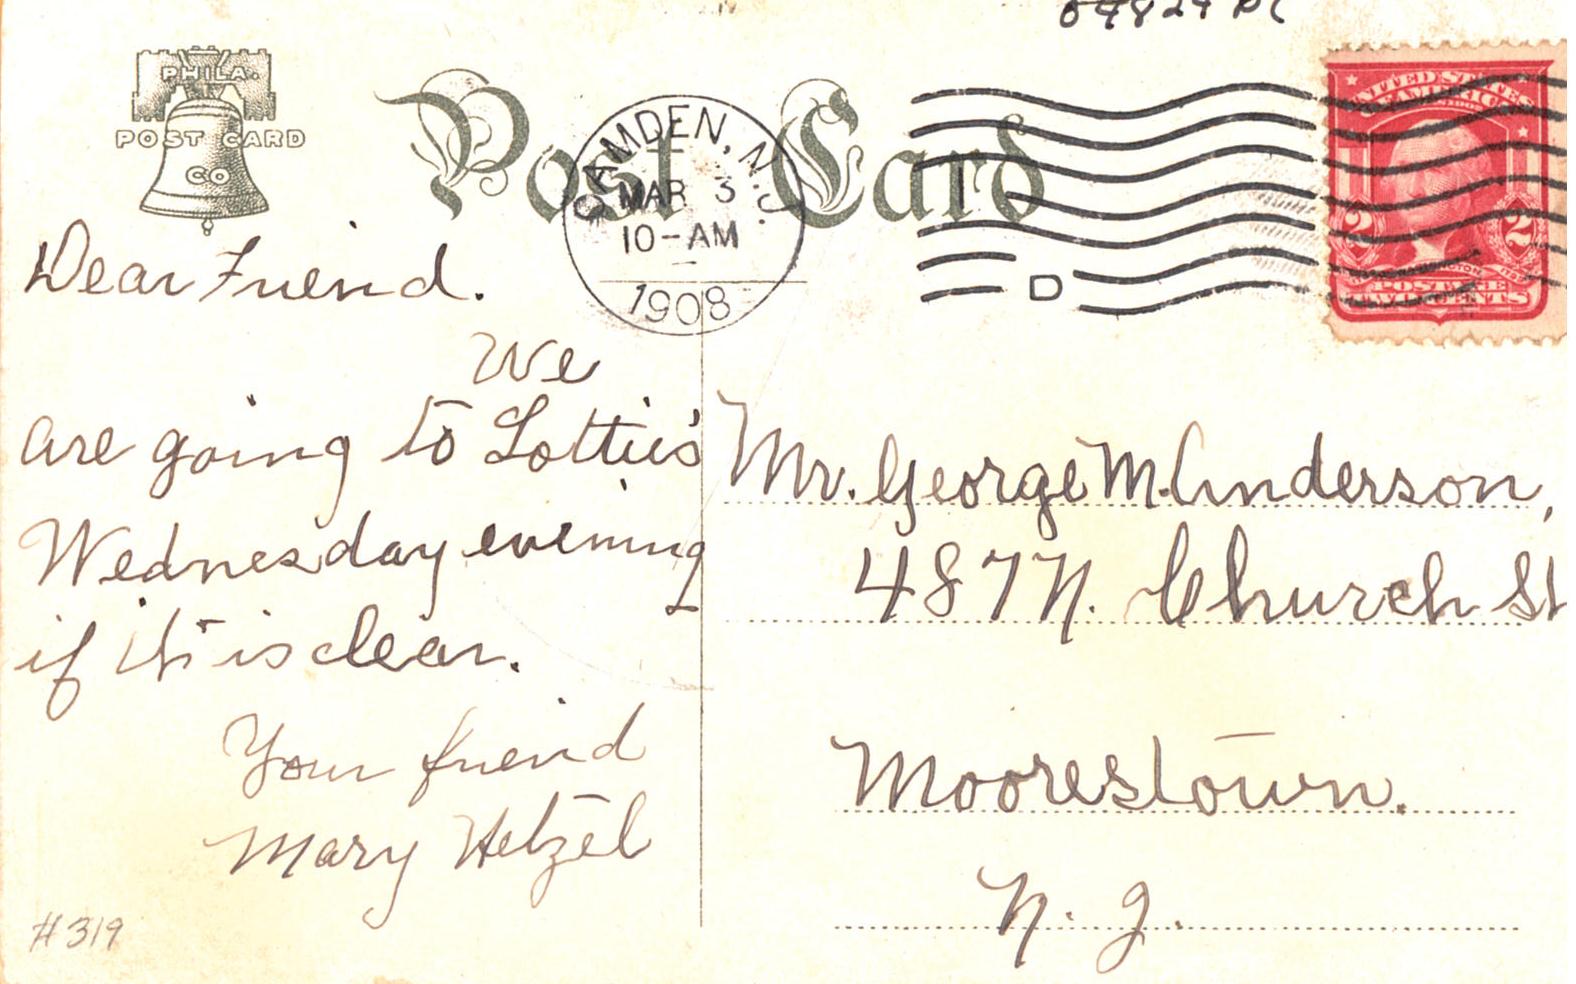 PHILA.
POST CARD
CO
Post Card
CAMDEN, N.J.
MAR 3
10-AM
1908
D
UNITED STATES
OF AMERICA
2 2
POSTAGE
TWO CENTS
Dear Friend.
We
are going to Lottie's
Wednesday evening
if it is clear.
Your friend
Mary Hetzel
#319
Mr. George M. Anderson,
487 N. Church St
Moorestown.
N. J.